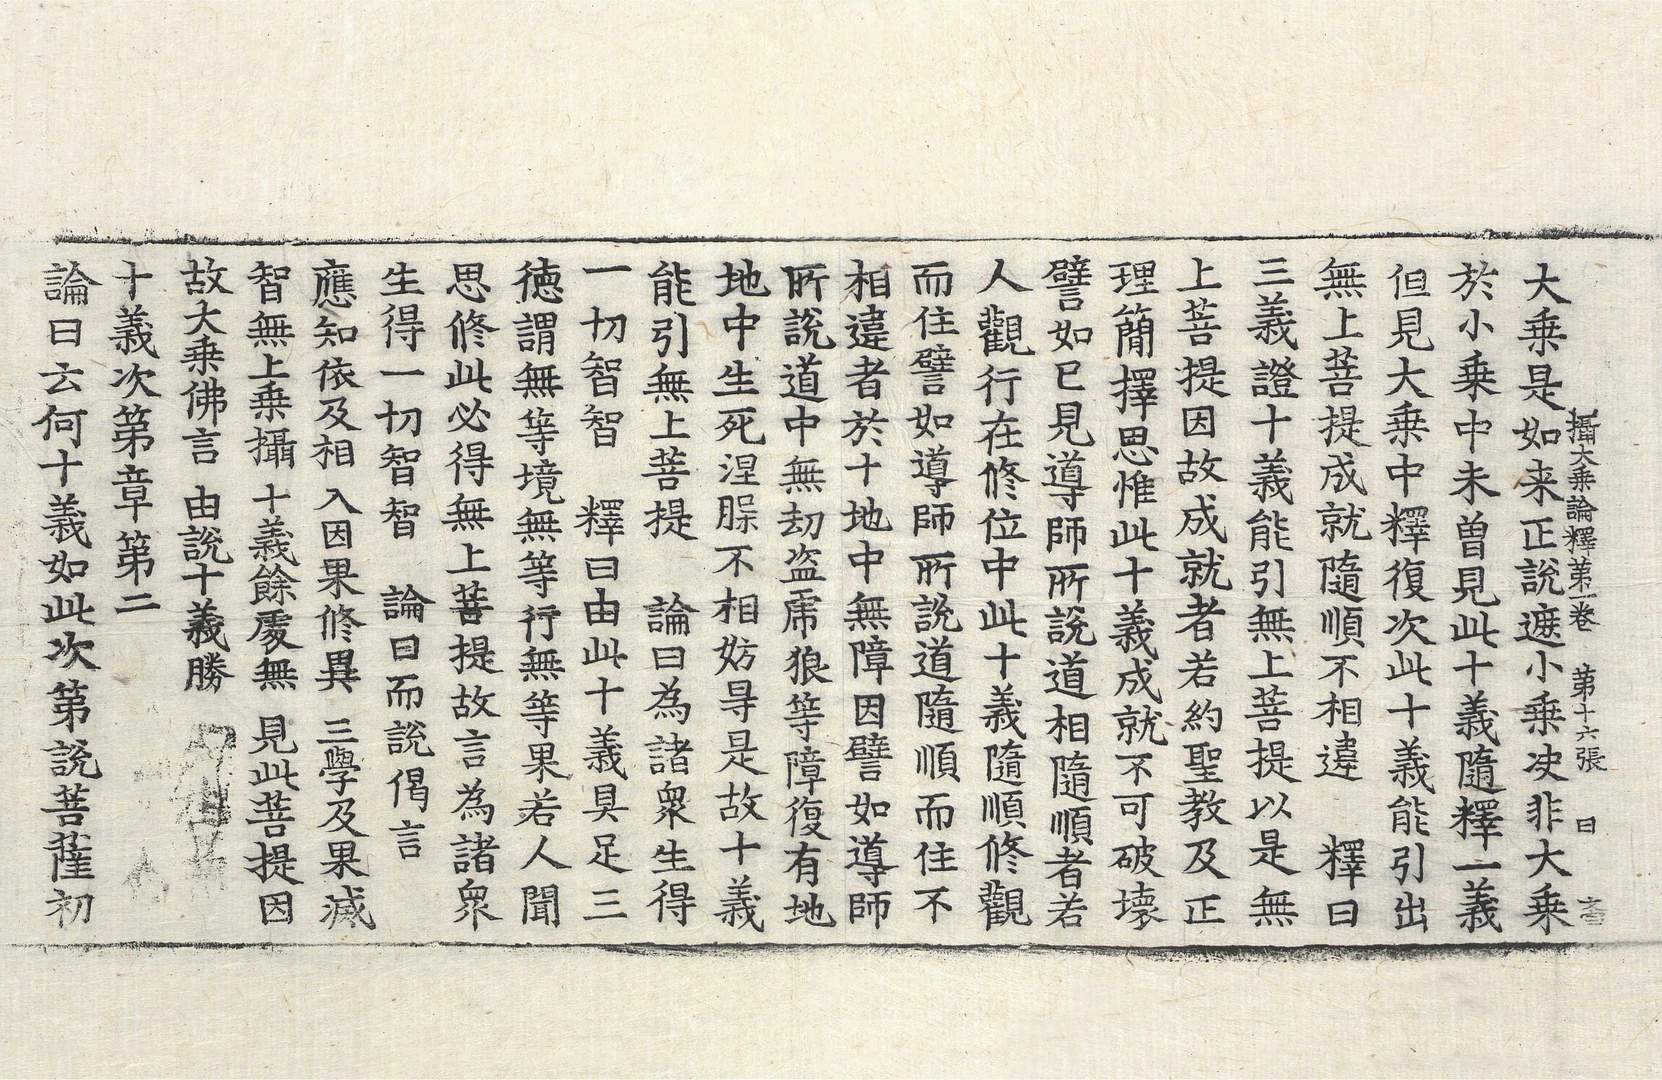 攝大乘論釋第一卷 第十六張 日
大乘是如来正說遮小乘決非大乘
於小乘中未曽見此十義隨釋一義
但見大乘中釋復次此十義能引出
無上菩提成就隨順不相違 釋曰
三義證十義能引無上菩提以是無
上菩提因故成就者若約聖教及正
理簡擇思惟此十義成就不可破壊
譬如已見導師所說道相隨順者若
人觀行在修位中此十義隨順修觀
而住譬如導師所說道隨順而住不
相違者於十地中無障因譬如導師
所說道中無劫盗虎狼等障復有地
地中生死涅槃不相妨㝵是故十義
能引無上菩提 論曰為諸衆生得
一切智智 釋曰由此十義具足三
徳謂無等境無等行無等果若人聞
思修此必得無上菩提故言為諸衆
生得一切智智 論曰而說偈言
應知依及相 入因果修異 三學及果滅
智無上乘攝 十義餘處無 見此菩提因
故大乘佛言 由說十義勝
十義次第章第二
論曰云何十義如此次第說菩薩初